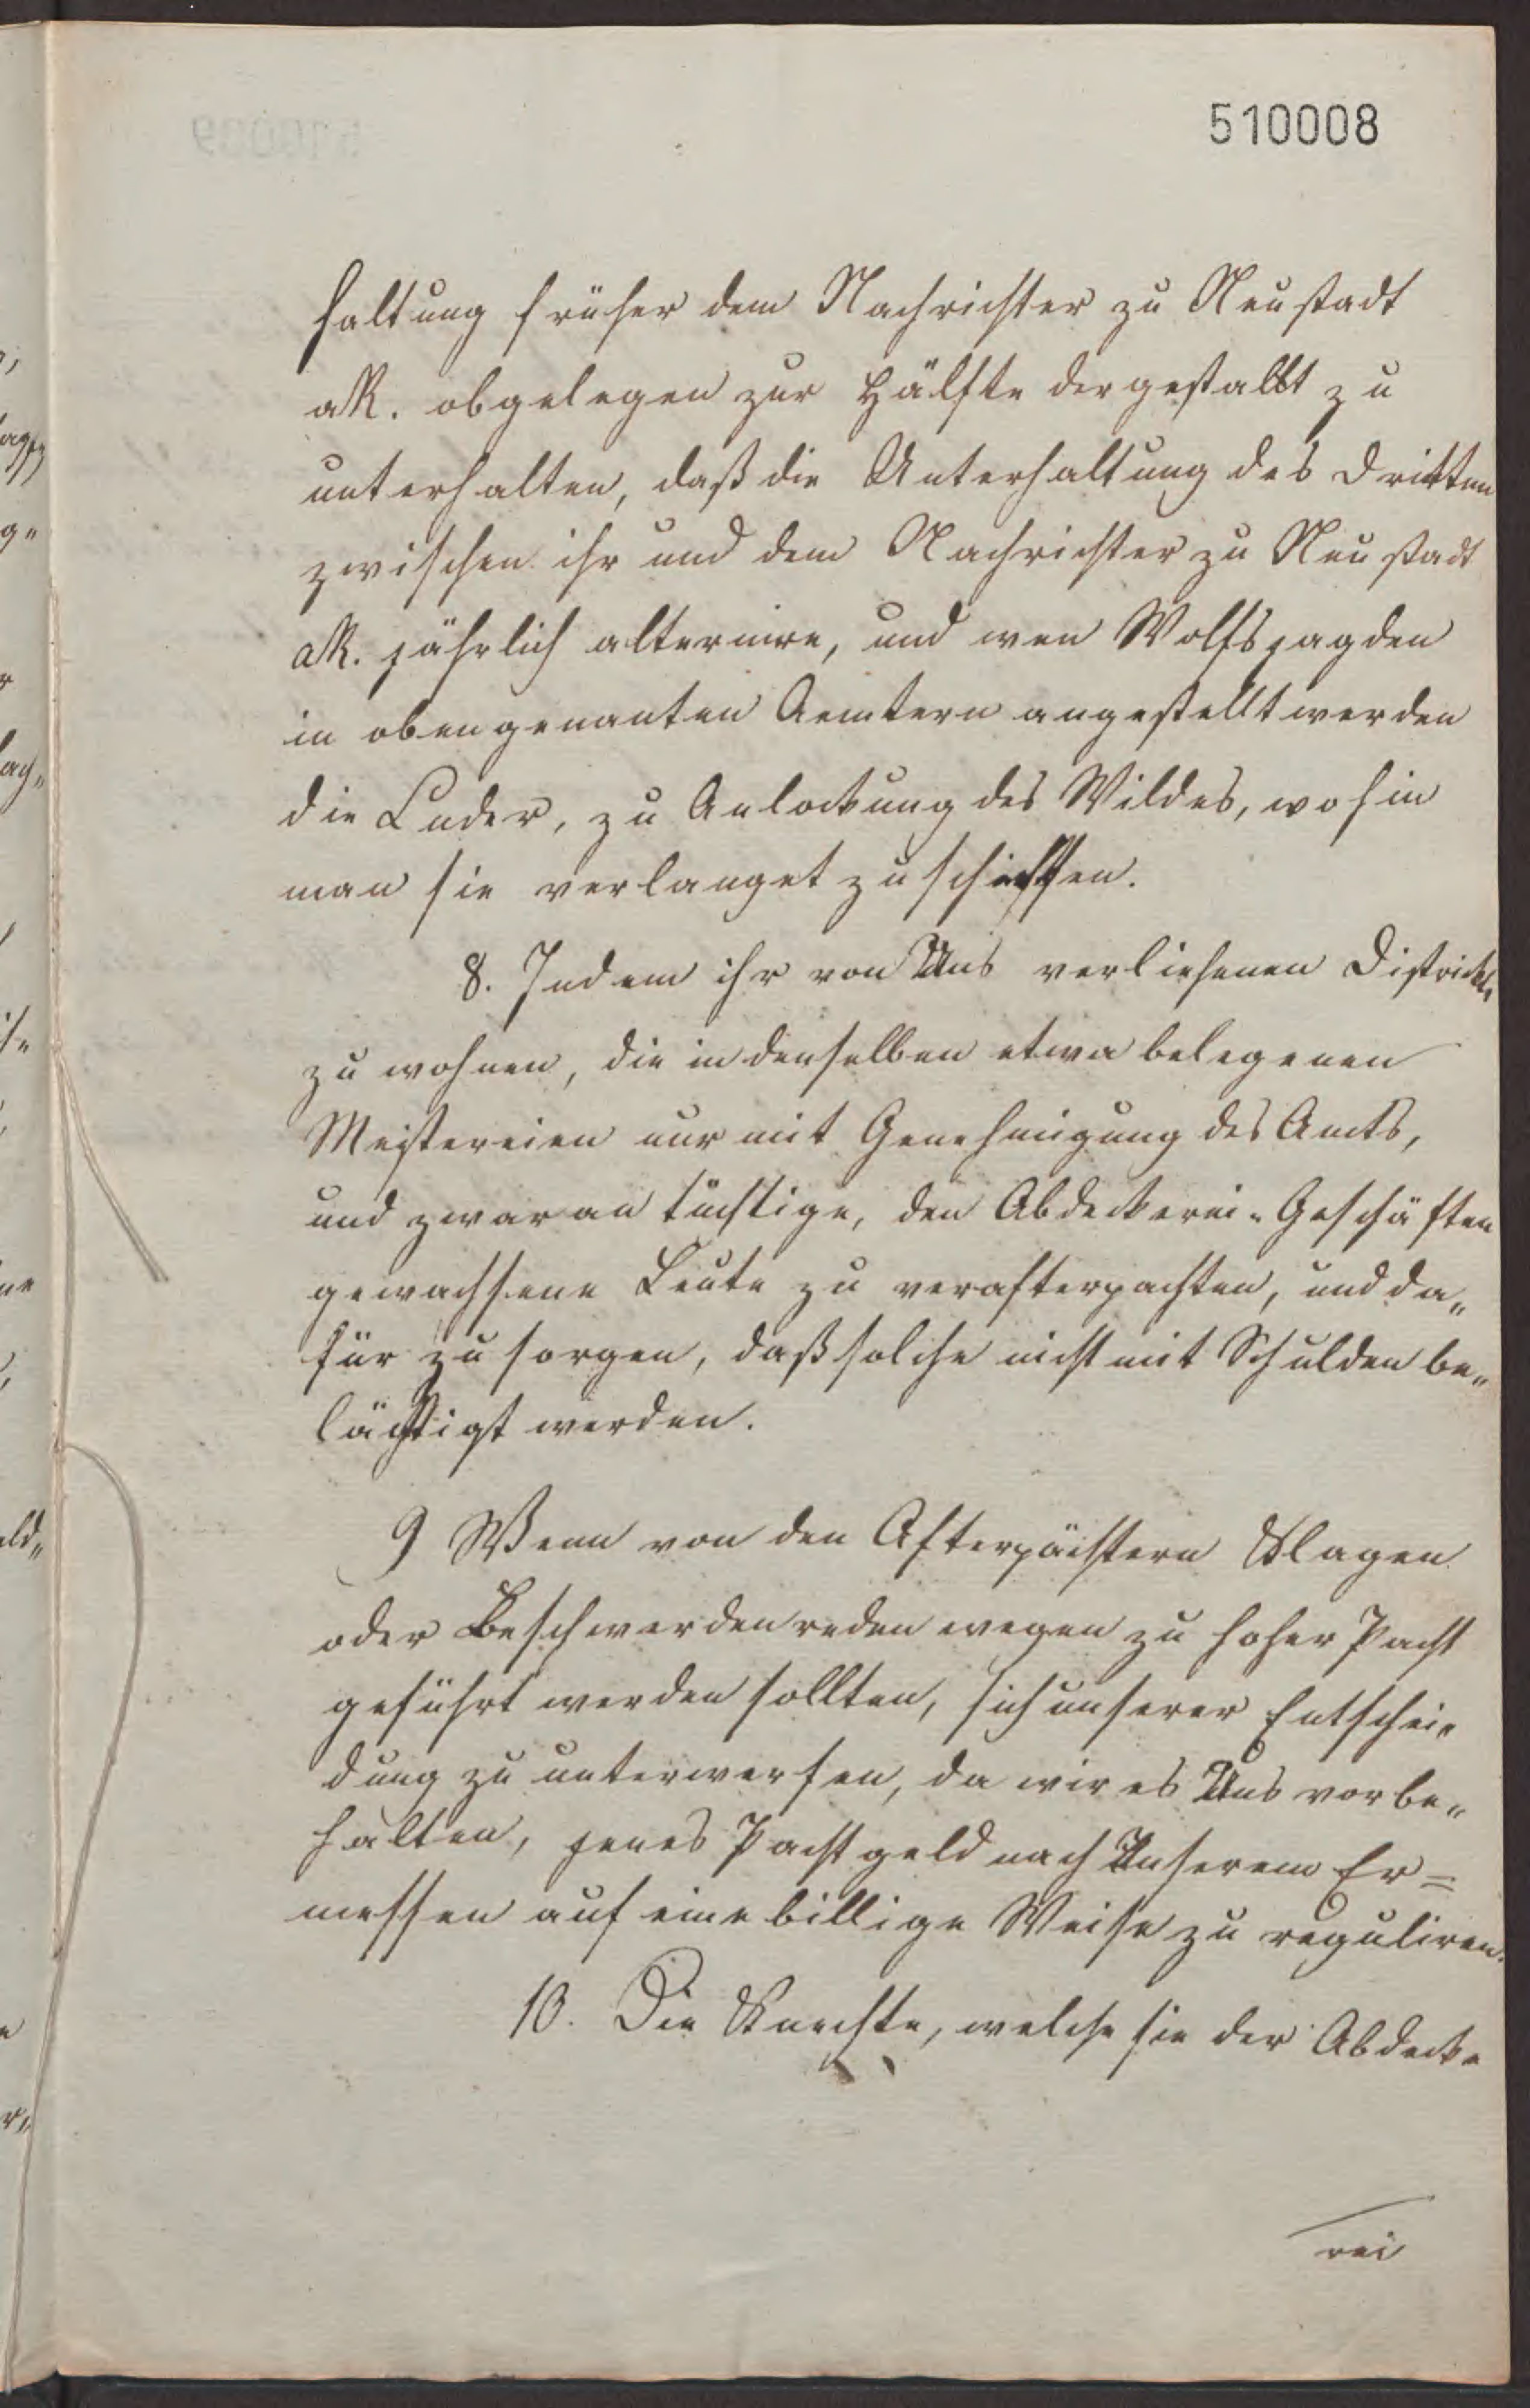 510008
haltung früher dem Nachrichter zu Neustadt
aR. obgelegen zur Hälfte dergestallt zu
unterhalten, daß die Unterhaltung des Dritten
zwischen ihr und dem Nachrichter zu Neustadt
aR. jährlich alternire, und wen Wolfsjagden
in obengenanten Aemtern angestellt werden
die Luder, zu Anlockung des Wildes, wohin
man sie verlanget zu schaffen.
8. In dem ihr von Uns verliehenen Districkte
zu wohnen, die in denselben etwa belegenen
Meistereien nur mit Genehmigung des Amts,
und zwar an tüchtige, den Abdeckerei-Geschäften
gewachsene Leute zu verafterpachten, und da„
für zu sorgen, daß solche nicht mit Schulden be„
lästigt werden.
9 Wenn von den Afterpächtern Klagen
oder Beschwerden reden wegen zu hoher Pacht
geführt werden sollten, sich unserer Entschei„
dung zu unterwerfen, da wir es Uns vorbe„
halten, jenes Pachtgeld nach Unserem Er=
messen auf eine billige Weise zu reguliren.
10. Die Knechte, welche sie der Abdecke
rei